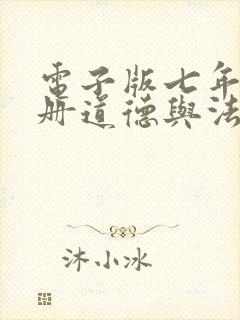 電子版七年
冊道德與法
沐小冰